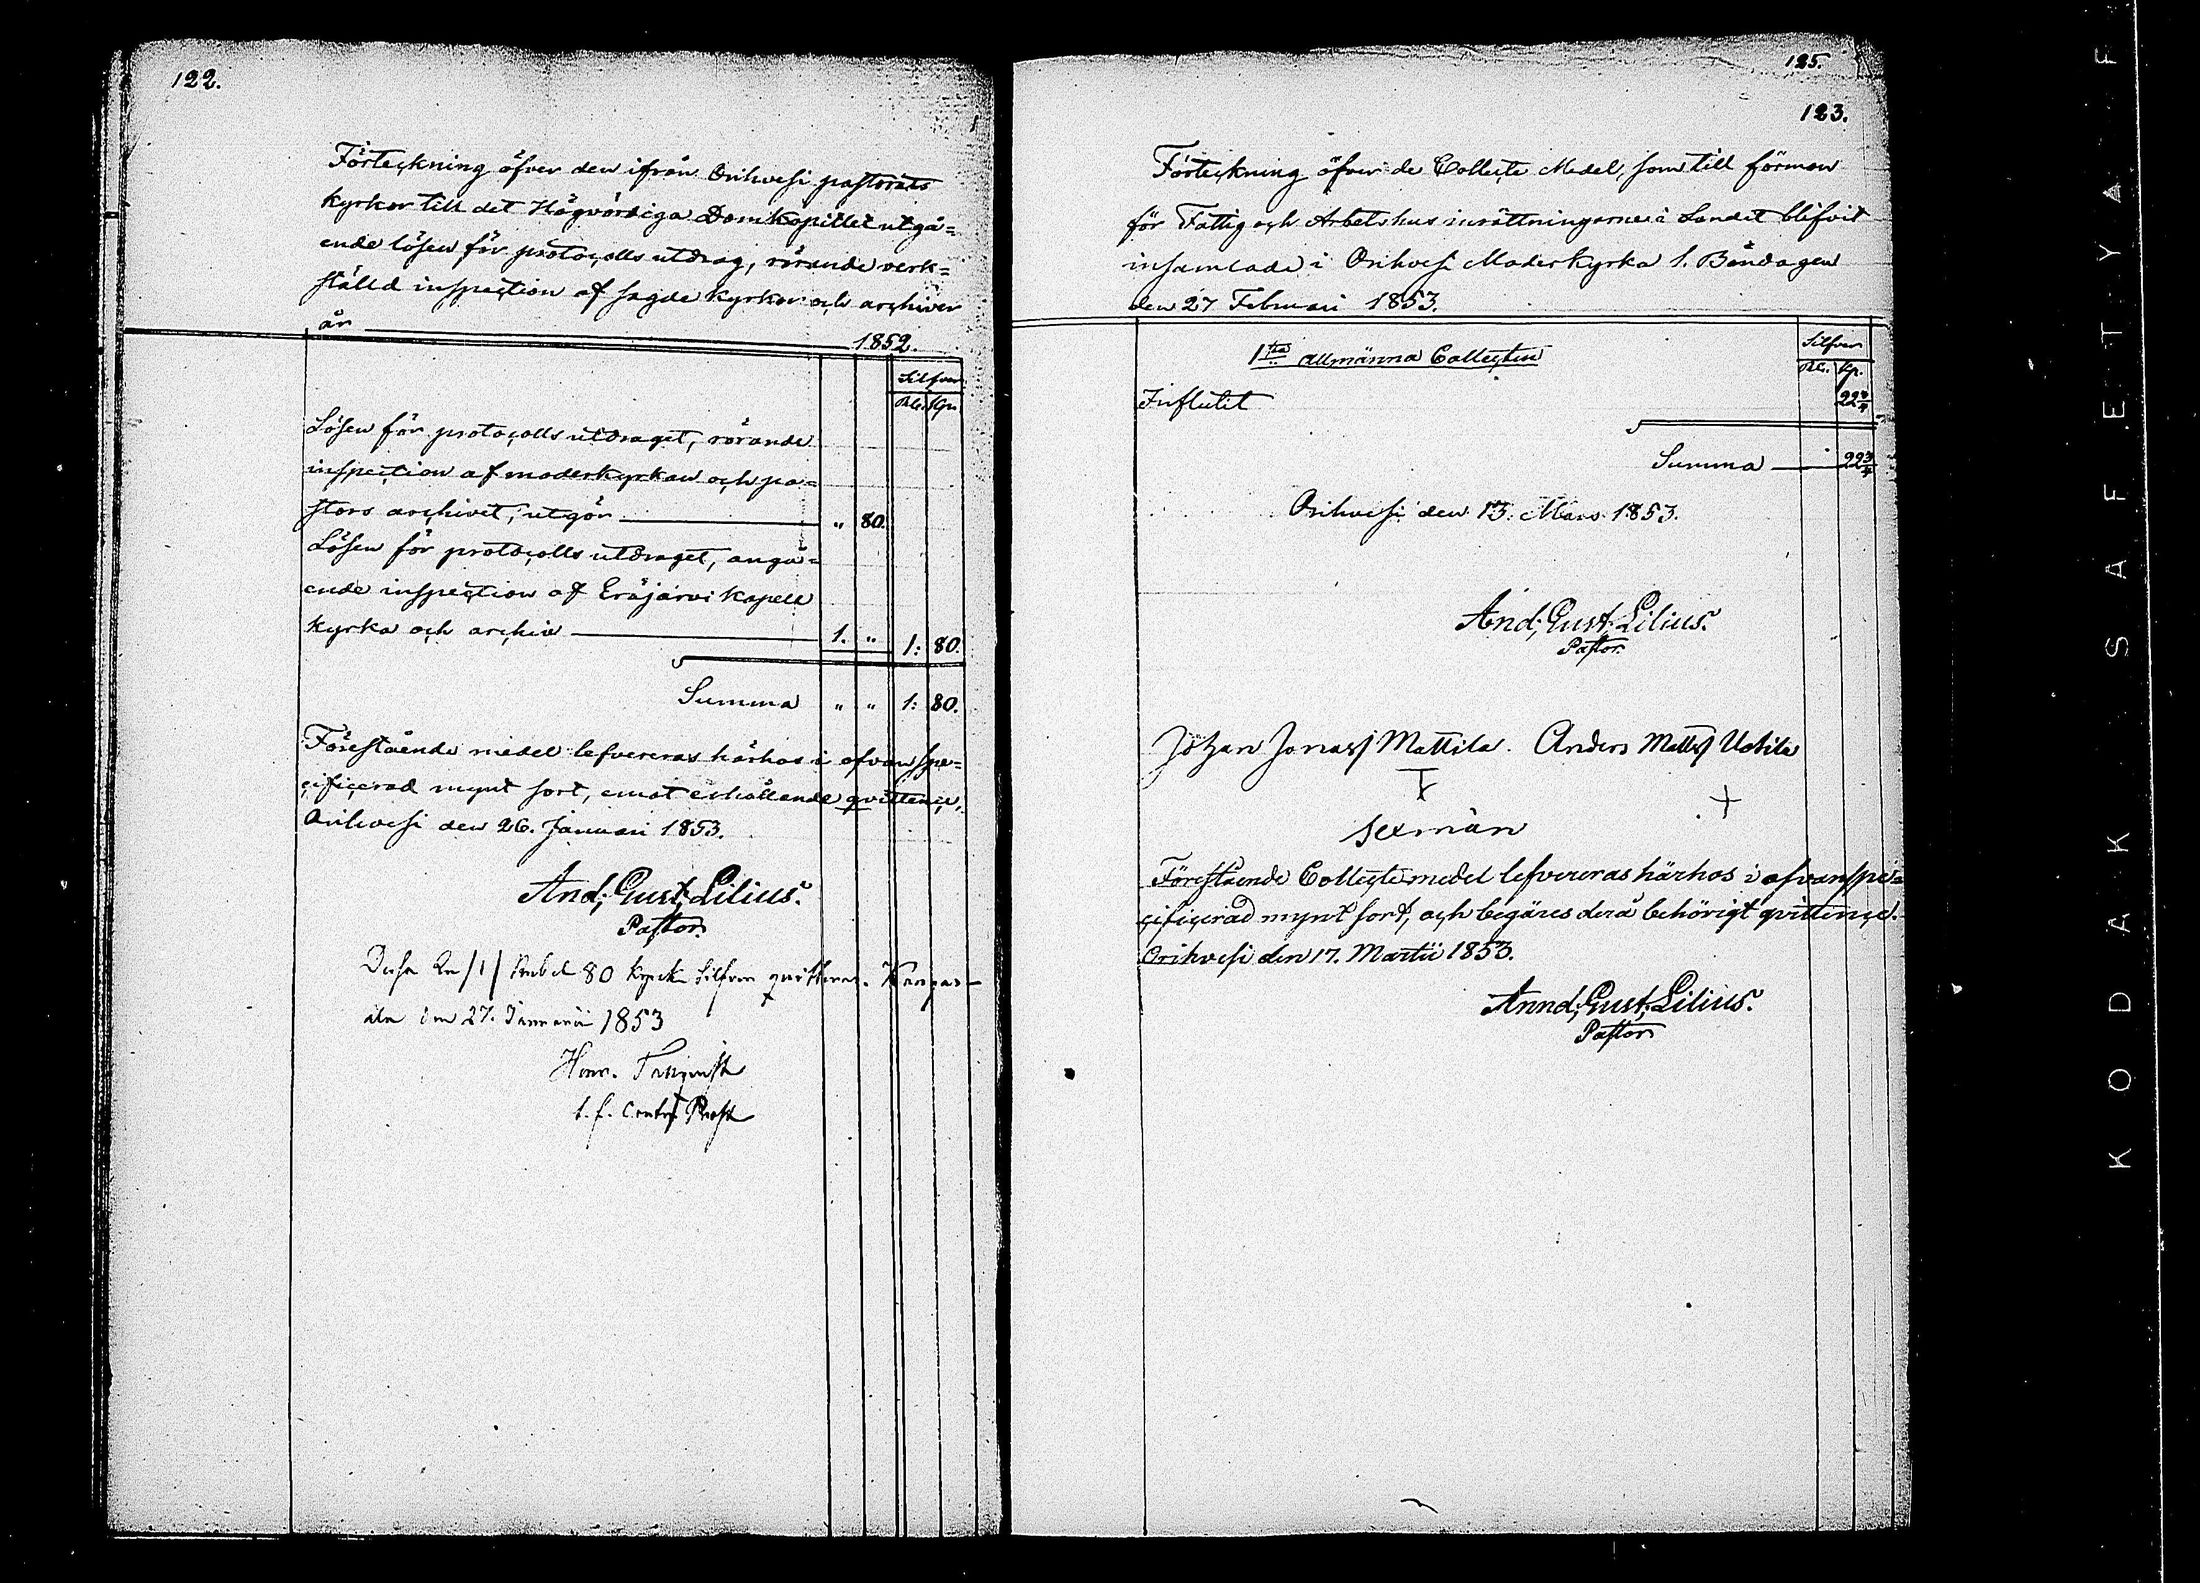 122.
Förteckning öfver den ifrån Orihvesi pastorats
kyrkor till det Högvördiga Domkapitlet utgå=
ende lösen för protocolls utdrag, rörande verk=
ställd inspection af sagde kyrkor och archiver
år 1852.
Silfver
Rbl. Kpr.
Lösen för protocolls utdraget, rörande
inspection af moderkyrkan och pa=
stors archivet, utgör " 80.
Lösen för protocolls utdraget, angå=
ende inspection af Eräjärvi kapell
kyrka och archiv 1. " 1: 80.
Summa " " 1: 80.
Förestående medel lefvereras härhos i ofvanspe=
cificerad mynt sort, emot erhållande qvittence,
Orihvesi den 26. Januari 1853.
And; Gust; Lilius.
Pastor.
Desse En /1/ Rubel 80 kopek Silfver qvitteras. Kangas-
ala den 27. Januarii 1853
Henr.
t. f. Contr Prost
125.
123.
Förteckning öfver de Collecte Medel, som till förmon
för Fattig och Arbetshus inrättningarne i Landet blifvit
insamlade i Orihvesi Moderkyrka 1. Böndagen
den 27 Februari 1853.
1sta allmänna Collecten
Silfver
Rbl. Kp.
Influtit 22 3/4
Summa 22 3/4
Orihvesi den 13. Mars 1853.
And; Gust; Lilius.
Pastor.
Johan Jonass Mattila. Anders Matts Uotila
sexmän
Förestående Collecte medel lefvereras härhos i ofvanspe=
cificerad mynt sort, och begäres derå behörigt qvittence.
Orihvesi den 17. Martii 1853.
Annd; Gust; Lilius.
Pastor
KODAK SAFETY A F